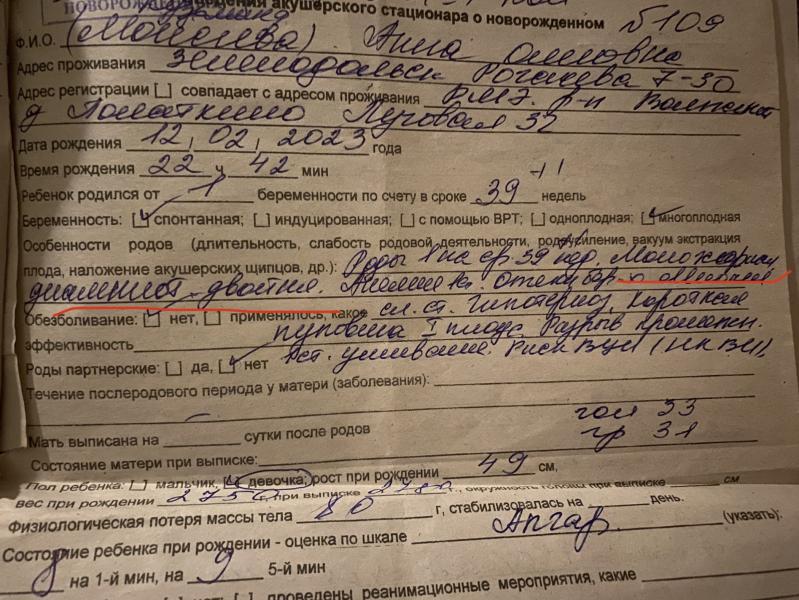 НОВОРОЖ акушерского стационара о новорожденном № 109
Ф.И.О. (Моисеева) Анна
Адрес проживания Зеленодольск Рогачева 7-30
Адрес регистрации [ ] совпадает с адресом проживания РМЭ. р-н Волжский
д Поматкино Луговая 32
Дата рождения 12, 02, 2023 года
Время рождения 22 ч 42 мин
Ребенок родился от 1 беременности по счету в сроке 39 недель
Беременность: [✓] спонтанная; [ ] индуцированная; [ ] с помощью ВРТ; [ ] одноплодная; [✓] многоплодная
Особенности родов (длительность, слабость родовой деятельности, родоусиление, вакуум экстракция
плода, наложение акушерских щипцов, др.): Роды 1 на ср. 39 нед. Монохориал
диамниот. двойня. Анемия Iст. Отеки бер.
Обезболивание: [✓] нет, [ ] применялось, какое сл. ст. Гипотериоз, короткая
эффективность пуповина I плода. Разрыв промежн.
Роды партнерские: [ ] да, [✓] нет Iст. ушивание. Риск ВУИ (НКВИ),
Течение послеродового периода у матери (заболевания):
гол 33
Мать выписана на сутки после родов гр 31
Состояние матери при выписке:
Пол ребенка: [ ] мальчик, [✓] девочка; рост при рождении 49 см,
вес при рождении 2750 г, при выписке г, окружность головы при выписке см
Физиологическая потеря массы тела 80 г, стабилизовалась на день.
Состояние ребенка при рождении - оценка по шкале Апгар. (указать):
8 на 1-й мин, на 9 5-й мин
[ ] проведены реанимационные мероприятия, какие